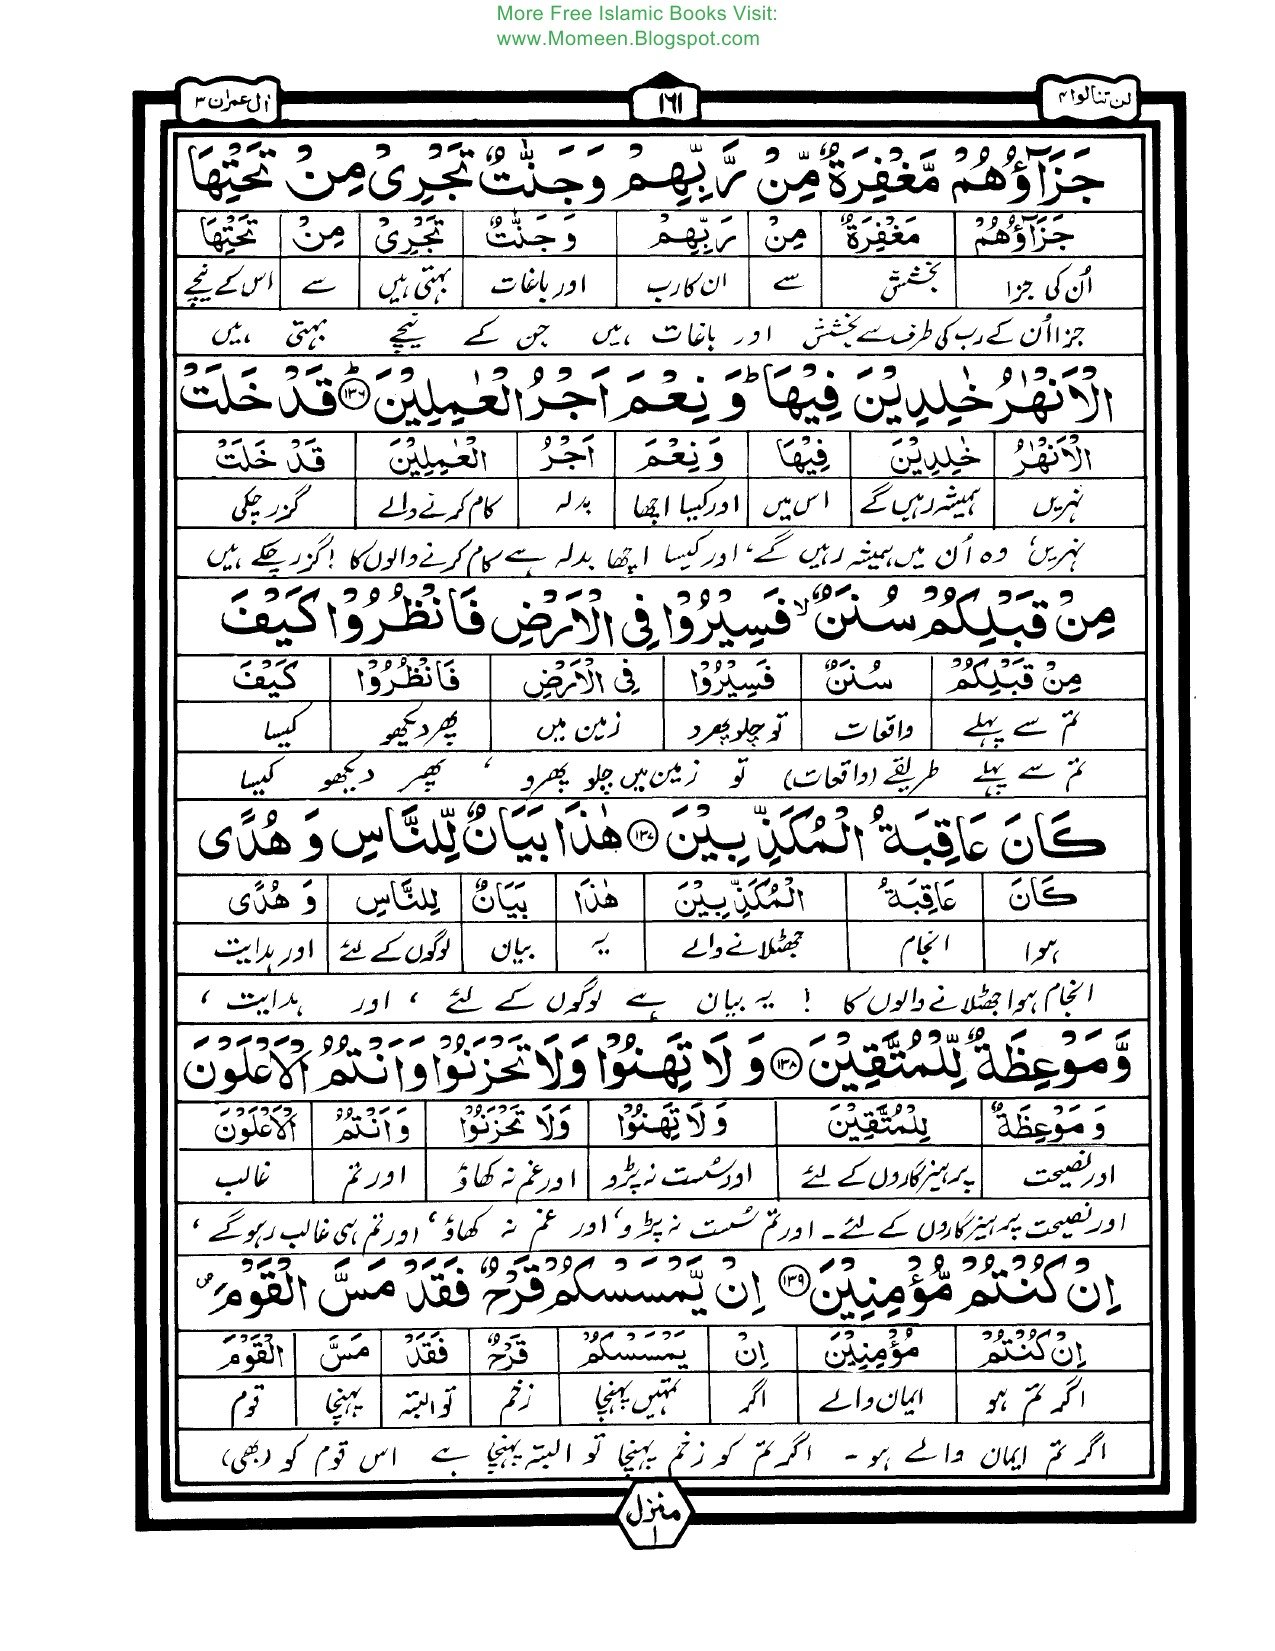 More Free Islamic Books Visit:
www.Momeen.Blogspot.com
لن تنالوا ۴
۱۶۱
اٰل عمران ۳
جَزَآؤُهُمْ مَّغْفِرَةٌ مِّنْ رَّبِّهِمْ وَجَنّٰتٌ تَجْرِیْ مِنْ تَحْتِهَا
جَزَآؤُهُمْ مَغْفِرَةٌ مِنْ رَبِّهِمْ وَجَنّٰتٌ تَجْرِیْ مِنْ تَحْتِهَا
اُن کی جزا بخشش سے ان کا رب اور باغات بہتی ہیں سے اس کے نیچے
جزا اُن کے رب کی طرف سے بخشش اور باغات ہیں جن کے نیچے بہتی ہیں
الْاَنْهٰرُ خٰلِدِیْنَ فِیْهَا ؕ وَنِعْمَ اَجْرُ الْعٰمِلِیْنَ ﴿۱۳۶﴾ؕ قَدْ خَلَتْ
الْاَنْهٰرُ خٰلِدِیْنَ فِیْهَا وَنِعْمَ اَجْرُ الْعٰمِلِیْنَ قَدْ خَلَتْ
نہریں ہمیشہ رہیں گے اس میں اور کیسا اچھا بدلہ کام کرنے والے گزر چکی
نہریں، وہ اُن میں ہمیشہ رہیں گے، اور کیسا اچھا بدلہ ہے کام کرنے والوں کا! گزر چکے ہیں
مِنْ قَبْلِكُمْ سُنَنٌ ۙ فَسِیْرُوْا فِی الْاَرْضِ فَانْظُرُوْا كَیْفَ
مِنْ قَبْلِكُمْ سُنَنٌ فَسِیْرُوْا فِی الْاَرْضِ فَانْظُرُوْا كَیْفَ
تم سے پہلے واقعات تو چلو پھرو زمین میں پھر دیکھو کیسا
تم سے پہلے طریقے (واقعات) تو زمین میں چلو پھرو ، پھر دیکھو کیسا
كَانَ عَاقِبَةُ الْمُكَذِّبِیْنَ ﴿۱۳۷﴾ هٰذَا بَیَانٌ لِّلنَّاسِ وَهُدًی
كَانَ عَاقِبَةُ الْمُكَذِّبِیْنَ هٰذَا بَیَانٌ لِلنَّاسِ وَهُدًی
ہوا انجام جھٹلانے والے یہ بیان لوگوں کے لئے اور ہدایت
انجام ہوا جھٹلانے والوں کا ! یہ بیان ہے لوگوں کے لئے ، اور ہدایت ،
وَّمَوْعِظَةٌ لِّلْمُتَّقِیْنَ ﴿۱۳۸﴾ وَلَا تَهِنُوْا وَلَا تَحْزَنُوْا وَاَنْتُمُ الْاَعْلَوْنَ
وَمَوْعِظَةٌ لِلْمُتَّقِیْنَ وَلَا تَهِنُوْا وَلَا تَحْزَنُوْا وَاَنْتُمُ الْاَعْلَوْنَ
اور نصیحت پرہیزگاروں کے لئے اور سُست نہ پڑو اور غم نہ کھاؤ اور تم غالب
اور نصیحت پرہیزگاروں کے لئے۔ اور تم سُست نہ پڑو، اور غم نہ کھاؤ، اور تم ہی غالب رہو گے ،
اِنْ كُنْتُمْ مُّؤْمِنِیْنَ ﴿۱۳۹﴾ اِنْ یَّمْسَسْكُمْ قَرْحٌ فَقَدْ مَسَّ الْقَوْمَ
اِنْ كُنْتُمْ مُؤْمِنِیْنَ اِنْ یَمْسَسْكُمْ قَرْحٌ فَقَدْ مَسَّ الْقَوْمَ
اگر تم ہو ایمان والے اگر تمہیں پہنچا زخم تو البتہ پہنچا قوم
اگر تم ایمان والے ہو ۔ اگر تم کو زخم پہنچا تو البتہ پہنچا ہے اس قوم کو (بھی)
منزل ۱